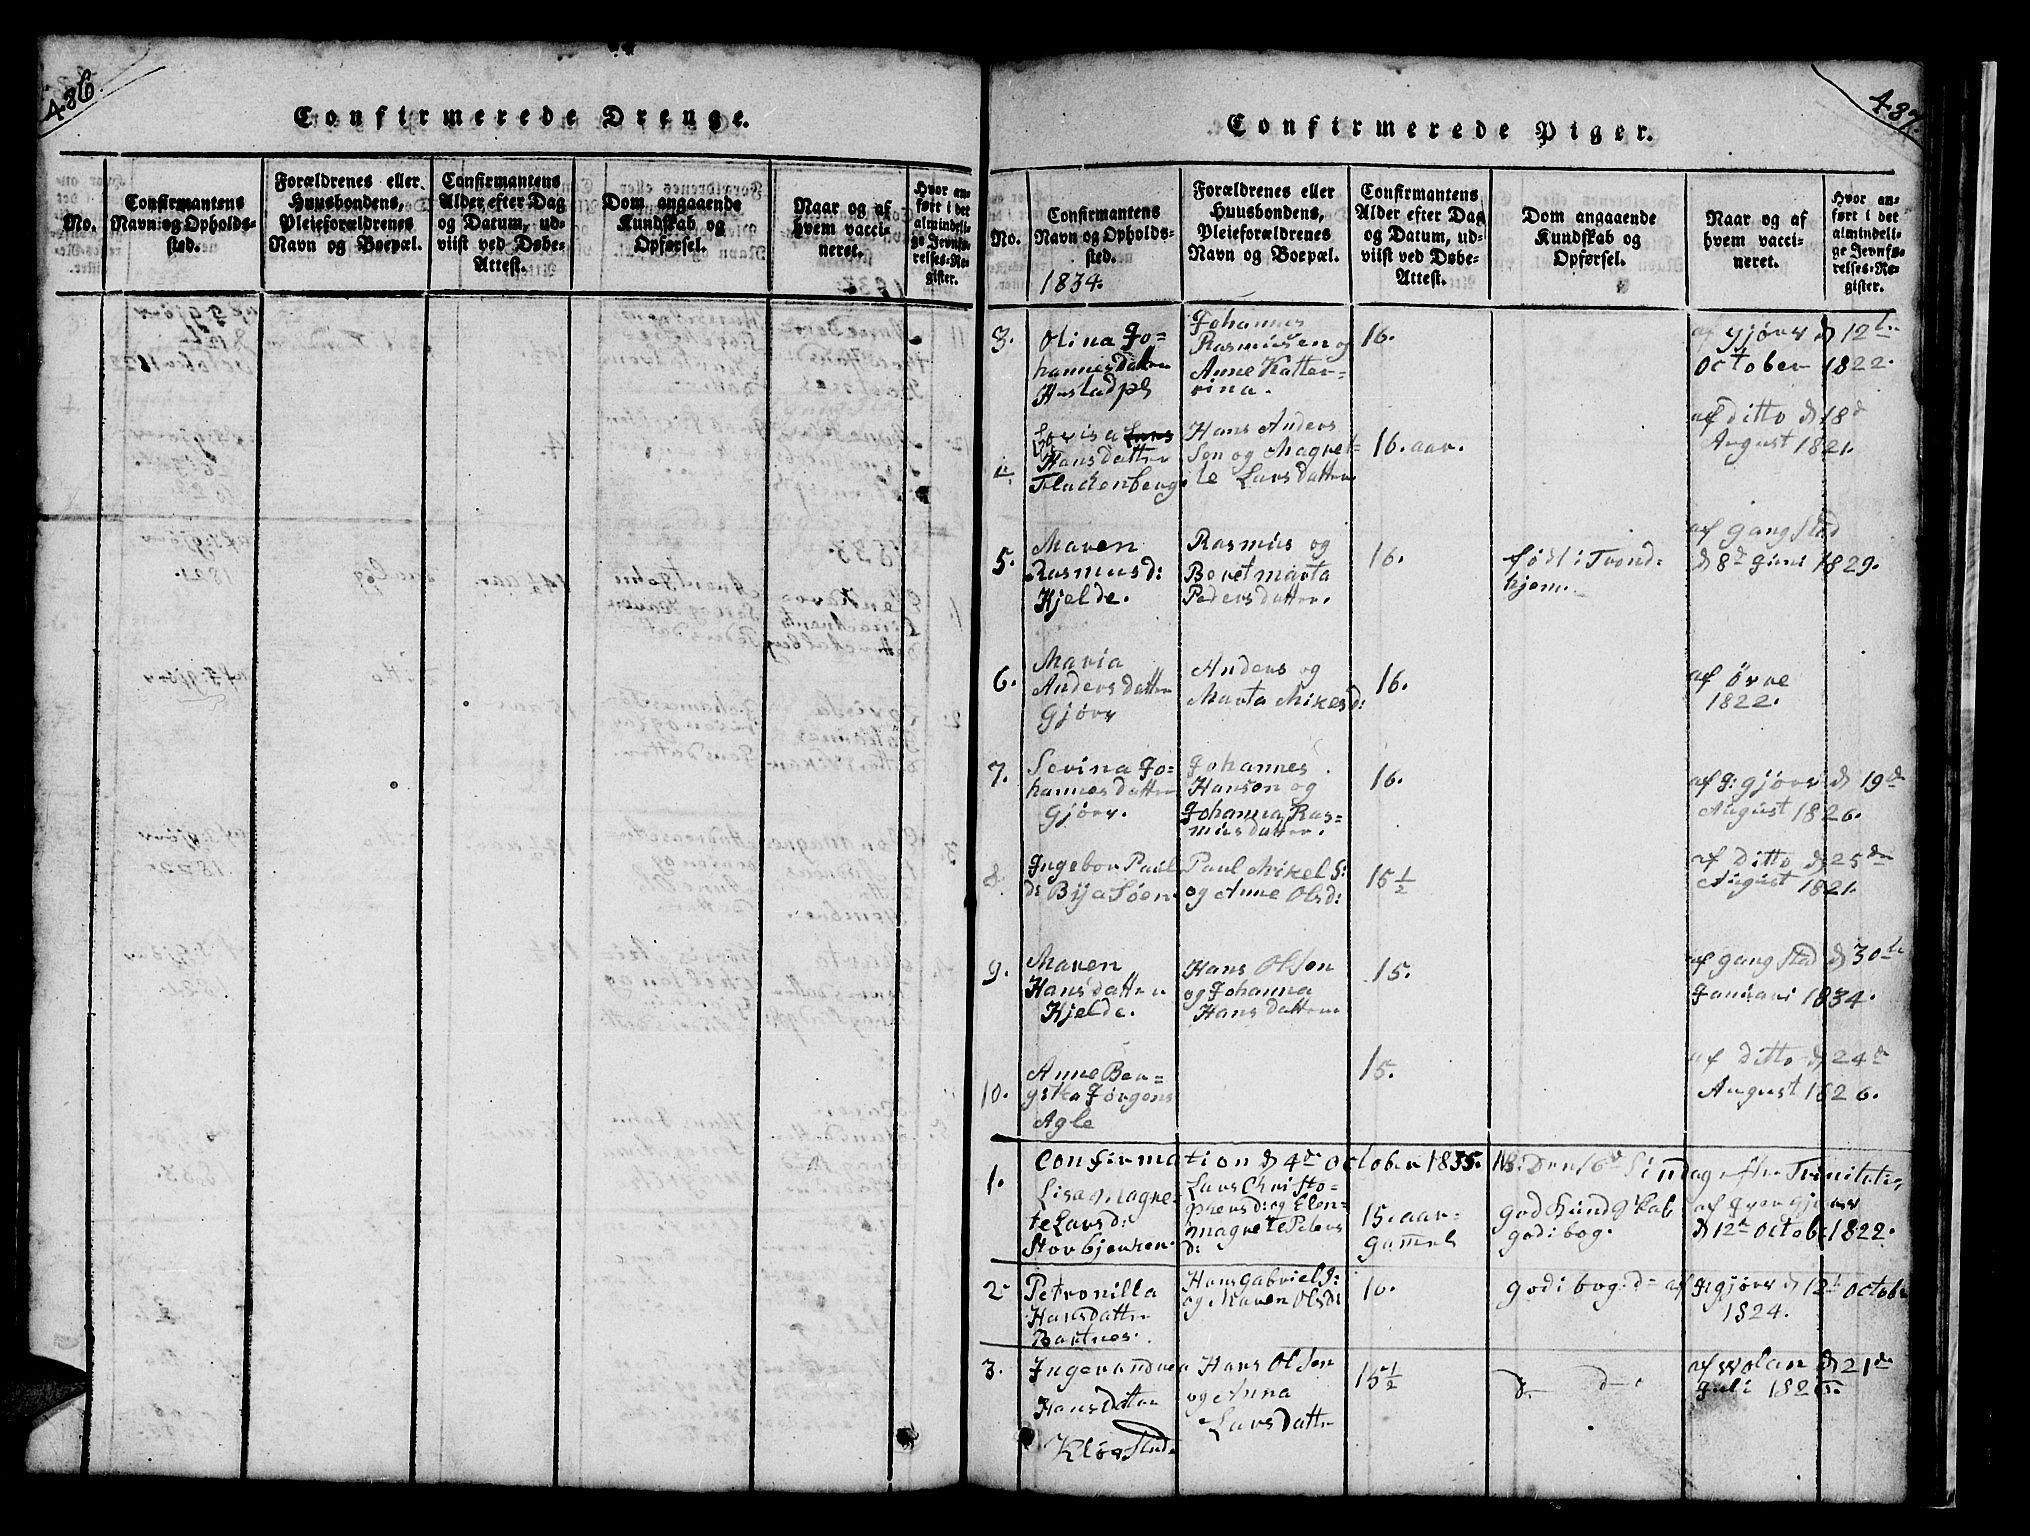 486.
Confirmerede Drenge.
No.
Confirmantens Navn og Opholds-sted.
Forældrenes eller Huusbondens, Pleieforældrenes Navn og Boepæl.
Confirmantens Alder efter Dag og Datum, ud-viist ved Døbe-Attest.
Dom angaaende Kundskab og Opførsel.
Naar og af hvem vacci-neret.
Hvor an-ført i det almindeli-ge Jevnfø-relses-Re-gister.
487.
Confirmerede Piger.
No.
Confirmantens Navn og Opholds-sted.
Forældrenes eller Huusbondens, Pleieforældrenes Navn og Boepæl.
Confirmantens Alder efter Dag og Datum, ud-viist ved Døbe-Attest.
Dom angaaende Kundskab og Opførsel.
Naar og af hvem vacci-neret.
Hvor an-ført i det almindeli-ge Jevnfø-relses-Re-gister.
1834.
3. Olina Jo=
hannesdatter
Hustadpl
Johannes
Rasmusen og
Anne Katter-
rina.
16.
af Gjörv d 12te
October 1822.
4. Lovisa
Hansdatter
Hans Anders
Søn og Magret-
te Larsdatter
16. aar.
af Ditto d 18d
August 1821.
5. Maren
Rasmusd:
Kjelde.
Rasmus og
Beret marta
Pedersdatter.
16.
født i Trond-
hjem.
af gangstad
d 8de Juni 1829.
6. Maria
Andersdatter
Gjörv
Anders og
Marta Mikelsd:
16.
af Ørve
1822.
7. Sevina Jo-
hannesdatter
Gjörv.
Johannes
Hanson og
Johanna Ras-
musdatter.
16.
af J: Gjörv d 19de
August 1826.
8. Ingebor Paul
d: Byasöen
Paul Mikel S:
og Anne Olsd:
15 1/2
af Ditto d 25de
August 1821.
9. Maren
Hansdatter
Kjelde.
Hans Olsen
og Johanna
Hansdatter
15.
af gangstad d 30te
Januari 1834.
10. Anne Ber=
gitta Jørgens
Agle
15.
af Ditto d 24de
August 1826.
Confirmation d 4de October 1835. NB: Den 16de Sindag efter Trinitatis,
1. Lisa Magre-
te Larsd:
Storbjerken.
Lars Christo-
phersd: og Elen
magrete Peters
d:
15. aar
gammel
god Kundskab
god i bog.
af Iver Gjörv
d 12te October 1822.
2 Petronilla
Hansdatter
Bartnes.
Hans Gabriel S:
og Maren Olsd:
16.
god i bog d= af J: gjörv d 12te October
1824.
3. Ingerandrea
Hansdatter
Hans Olsen
og Anna
Larsdatter
15 1/2
d- d-
d 21de
Juli